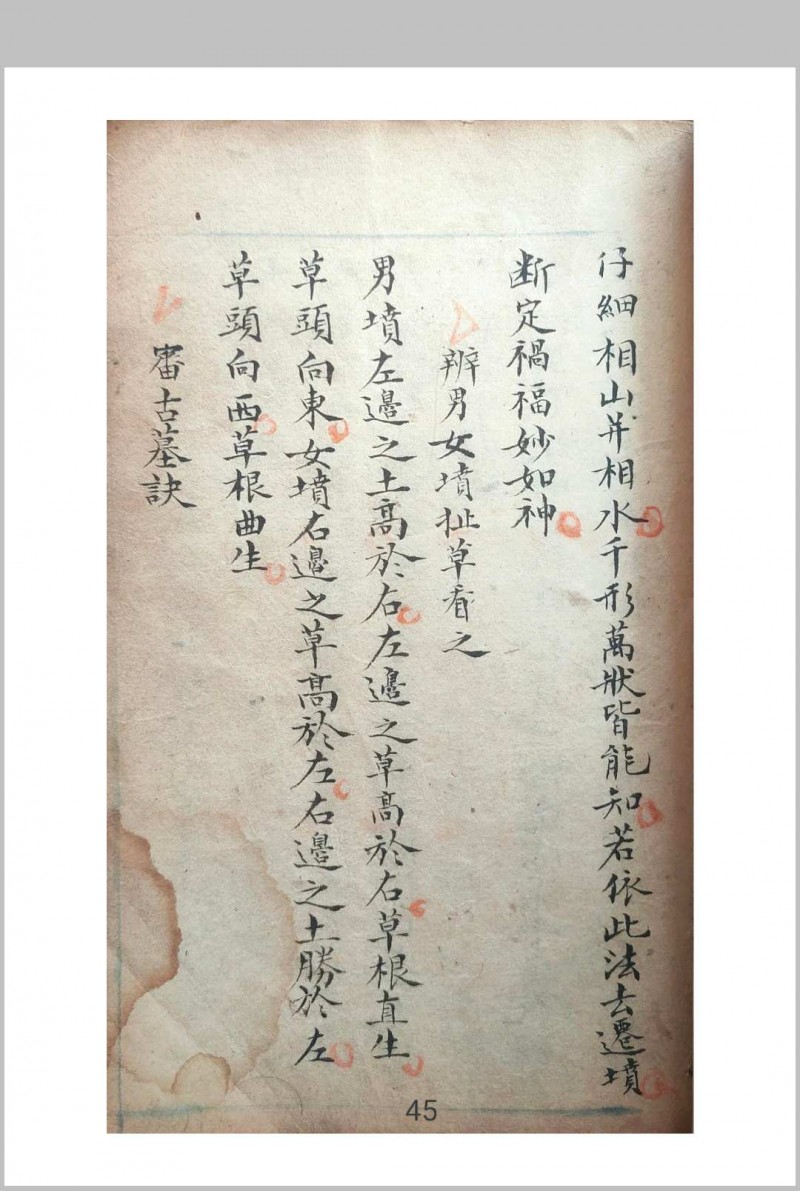 仔細相山并相水千形萬狀皆能知若依此法去遷墳
断定禍福妙如神
辨男女墳扯草看之
男墳左邊之土高於右左邊之草高於右草根直生
草頭向東女墳右邊之草高於左右邊之土勝於左
草頭向西草根曲生
審古墓訣
45